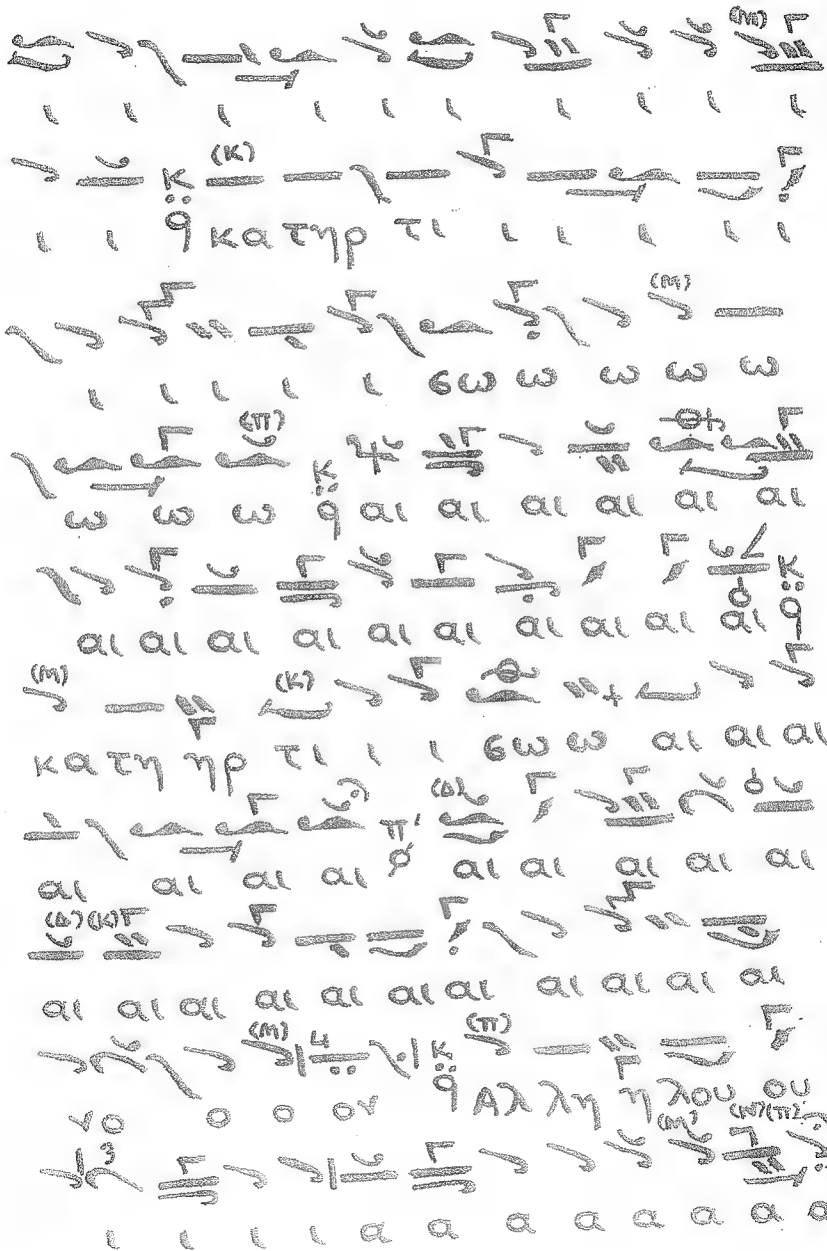 (Μ)
ι ι ι ι ι ι ι ι ι ι
(Κ)
ι ι κα τηρ τι ι ι ι ι ι
(Μ)
ι ι ι ι ι ϭω ω ω ω ω
(Π)
ω ω ω αι αι αι αι αι αι
αι αι αι αι αι αι αι αι αι αι
(Μ) (Κ)
κα τη ηρ τι ι ι ϭω ω αι αι αι
(Δ)
αι αι αι αι π αι αι αι αι αι
(Δ) (Κ)
αι αι αι αι αι αι αι αι αι αι αι
(Μ) (Π)
νο ο ο ον Αλ λη η λου ου
(Μ) (Ν) (Π)
ι ι ι ι α α α α α α α α